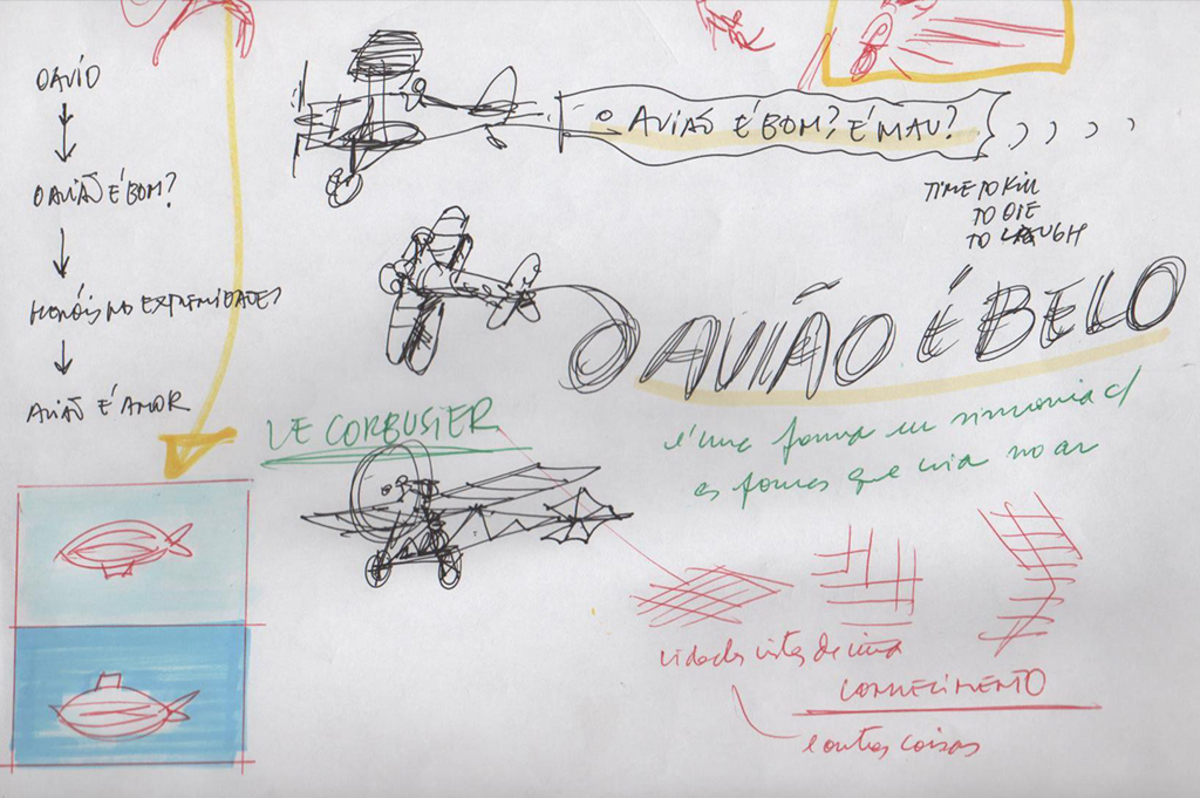 DAVID
O AVIÃO É BOM?
HERÓIS NAS EXTREMIDADES
AVIÃO É AMOR
O AVIÃO É BOM? É MAU?
TIME TO KILL
TO DIE
TO LAUGH
O AVIÃO É BELO
LE CORBUSIER
é uma forma em sintonia c/
as formas que cria no ar
cidades vistas de cima
CONHECIMENTO
e outras coisas